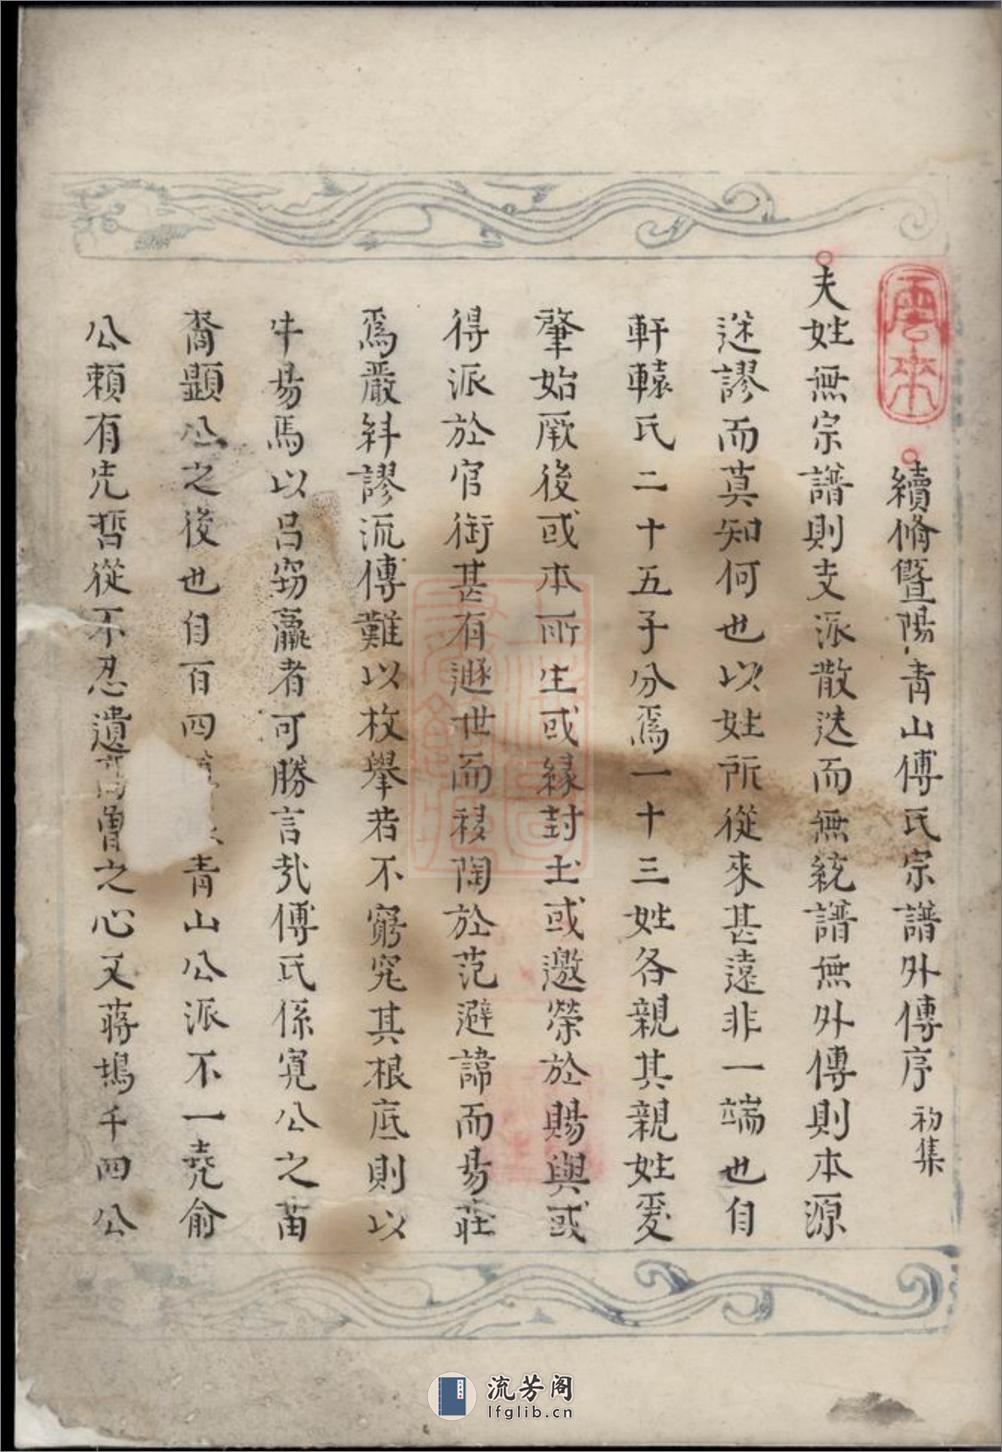 續脩暨陽青山傅氏宗譜外傳序 初集
夫姓無宗譜則支派散迭而無統譜無外傳則本源
迷謬而莫知何也以姓所從來甚遠非一端也自
軒轅氏二十五子分爲一十三姓各親其親姓爰
肇始厥後或本所生或緣封土或邀榮於賜與或
得派於官銜甚有遯世而移陶於范避諱而易莊
爲嚴糾謬流傳難以枚舉若不窮究其根底則以
牛易馬以呂竊嬴者可勝言哉傅氏係寬公之苗
裔顯公之後也自百四青山公派不一堯俞
公賴有先哲從不忍遺高曾之心又蔣塢千四公
雲來
流芳阁
lfglib.cn